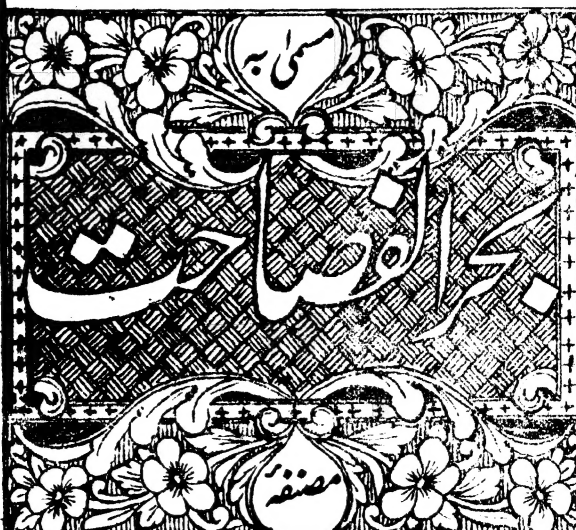 مسمیٰ بہ
بحر الفصاحت
مصنفہٗ